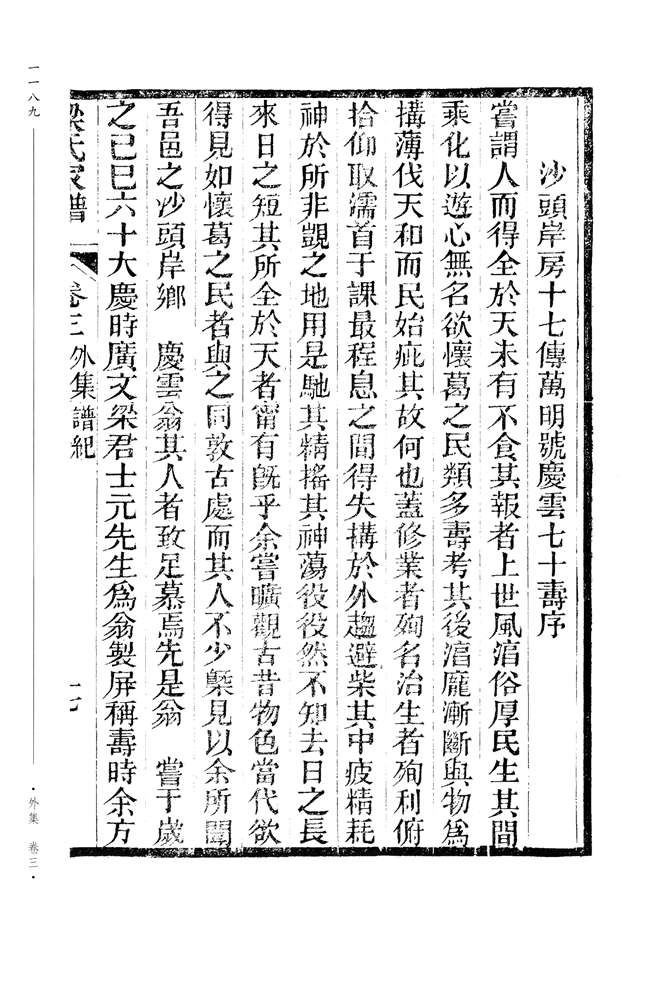 沙頭岸房十七傳萬明號慶雲七十壽序
嘗謂人而得全於天未有不食其報者上世風湻俗厚民生其間
乘化以遊心無名欲懷葛之民類多壽考其後湻龐漸斷與物為
搆薄伐天和而民始疵其故何也蓋修業者殉名治生者殉利俯
拾仰取濡首于課最程息之間得失搆於外趨避柴其中疲精耗
神於所非覬之地用是馳其精搖其神蕩役役然不知去日之長
來日之短其所全於天者甯有旣乎余嘗曠觀古昔物色當代欲
得見如懷葛之民者與之同敦古處而其人不少槩見以余所聞
吾邑之沙頭岸鄉 慶雲翁其人者致足慕焉先是翁 嘗于歲
之己巳六十大慶時廣文梁君士元先生為翁製屏稱壽時余方
梁氏家譜 卷三 外集譜紀 十七
一一八九
·外集 卷三·